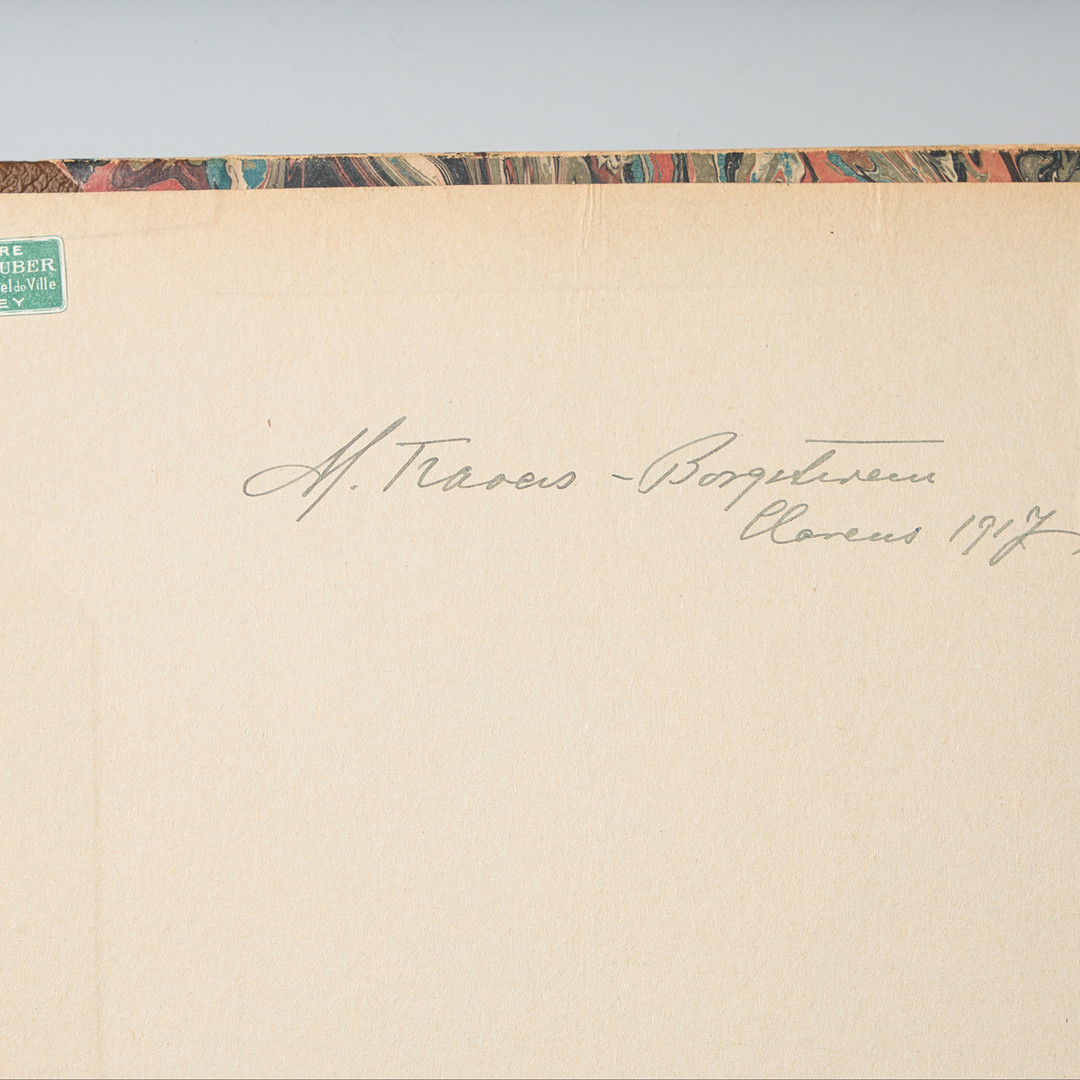 RE
UBER
el de Ville
EY
M. Travers - Borgstroem
Clarens 1917